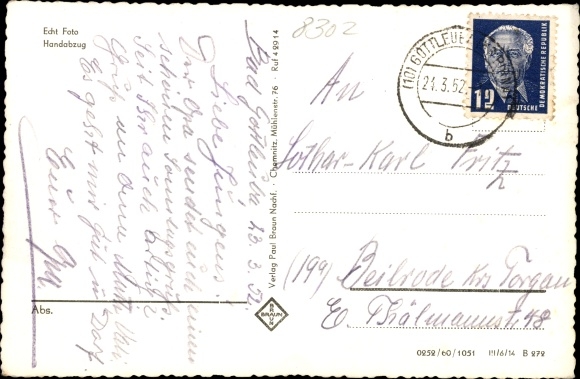 Echt Foto
Handabzug
8302
Bad Gottleuba 23.3.52.
Liebe Jungens!
Der Opa sendet euch einen
schönen Sonntagsgruß.
Seit Ihr auch artig?
Gruß an eure Mutti
Es geht mir gut
Euer Opa
Abs.
Verlag Paul Braun Nachf. · Chemnitz, Mühlenstr. 76 · Ruf 42914
BRAUN
(10) GOTTLEUBA
21.3.52.
b
12
DEUTSCHE
DEMOKRATISCHE REPUBLIK
An
Lothar-Karl Fritz
(199) Beilrode Krs Torgau
E. Thälmannstr. 48
0252/60/1051 III/6/14 B 272